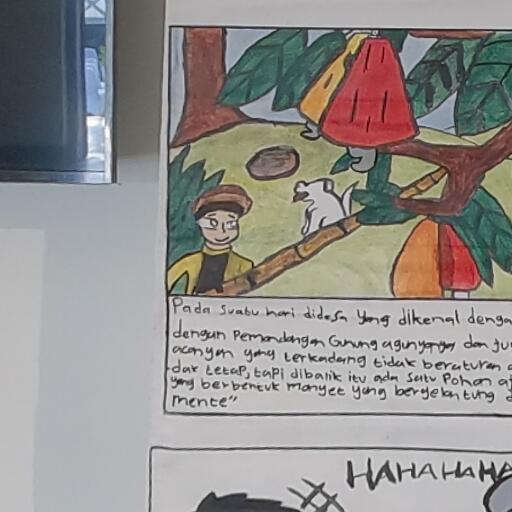 Pada suatu hari didesa yang dikenal denga
dengan Pemandangan Gunung agungnya dan ju
yang terkadang tidak beraturan
dar tetap, tapi dibalik itu ada satu Pohon
yang berbentuk monyet yang bergelantung d
mente"
HAHAHAHA